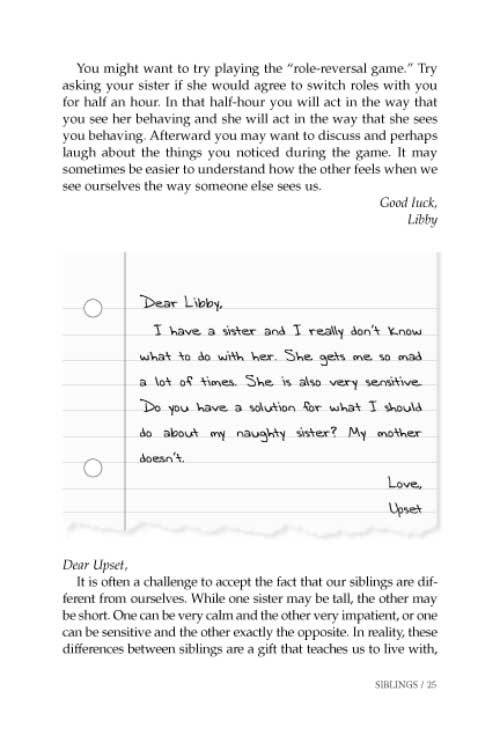 You might want to try playing the “role-reversal game.” Try
asking your sister if she would agree to switch roles with you
for half an hour. In that half-hour you will act in the way that
you see her behaving and she will act in the way that she sees
you behaving. Afterward you may want to discuss and perhaps
laugh about the things you noticed during the game. It may
sometimes be easier to understand how the other feels when we
see ourselves the way someone else sees us.
Good luck,
Libby
Dear Libby,
I have a sister and I really don't know
what to do with her. She gets me so mad
a lot of times. She is also very sensitive.
Do you have a solution for what I should
do about my naughty sister? My mother
doesn't.
Love,
Upset
Dear Upset,
It is often a challenge to accept the fact that our siblings are dif-
ferent from ourselves. While one sister may be tall, the other may
be short. One can be very calm and the other very impatient, or one
can be sensitive and the other exactly the opposite. In reality, these
differences between siblings are a gift that teaches us to live with,
SIBLINGS / 25